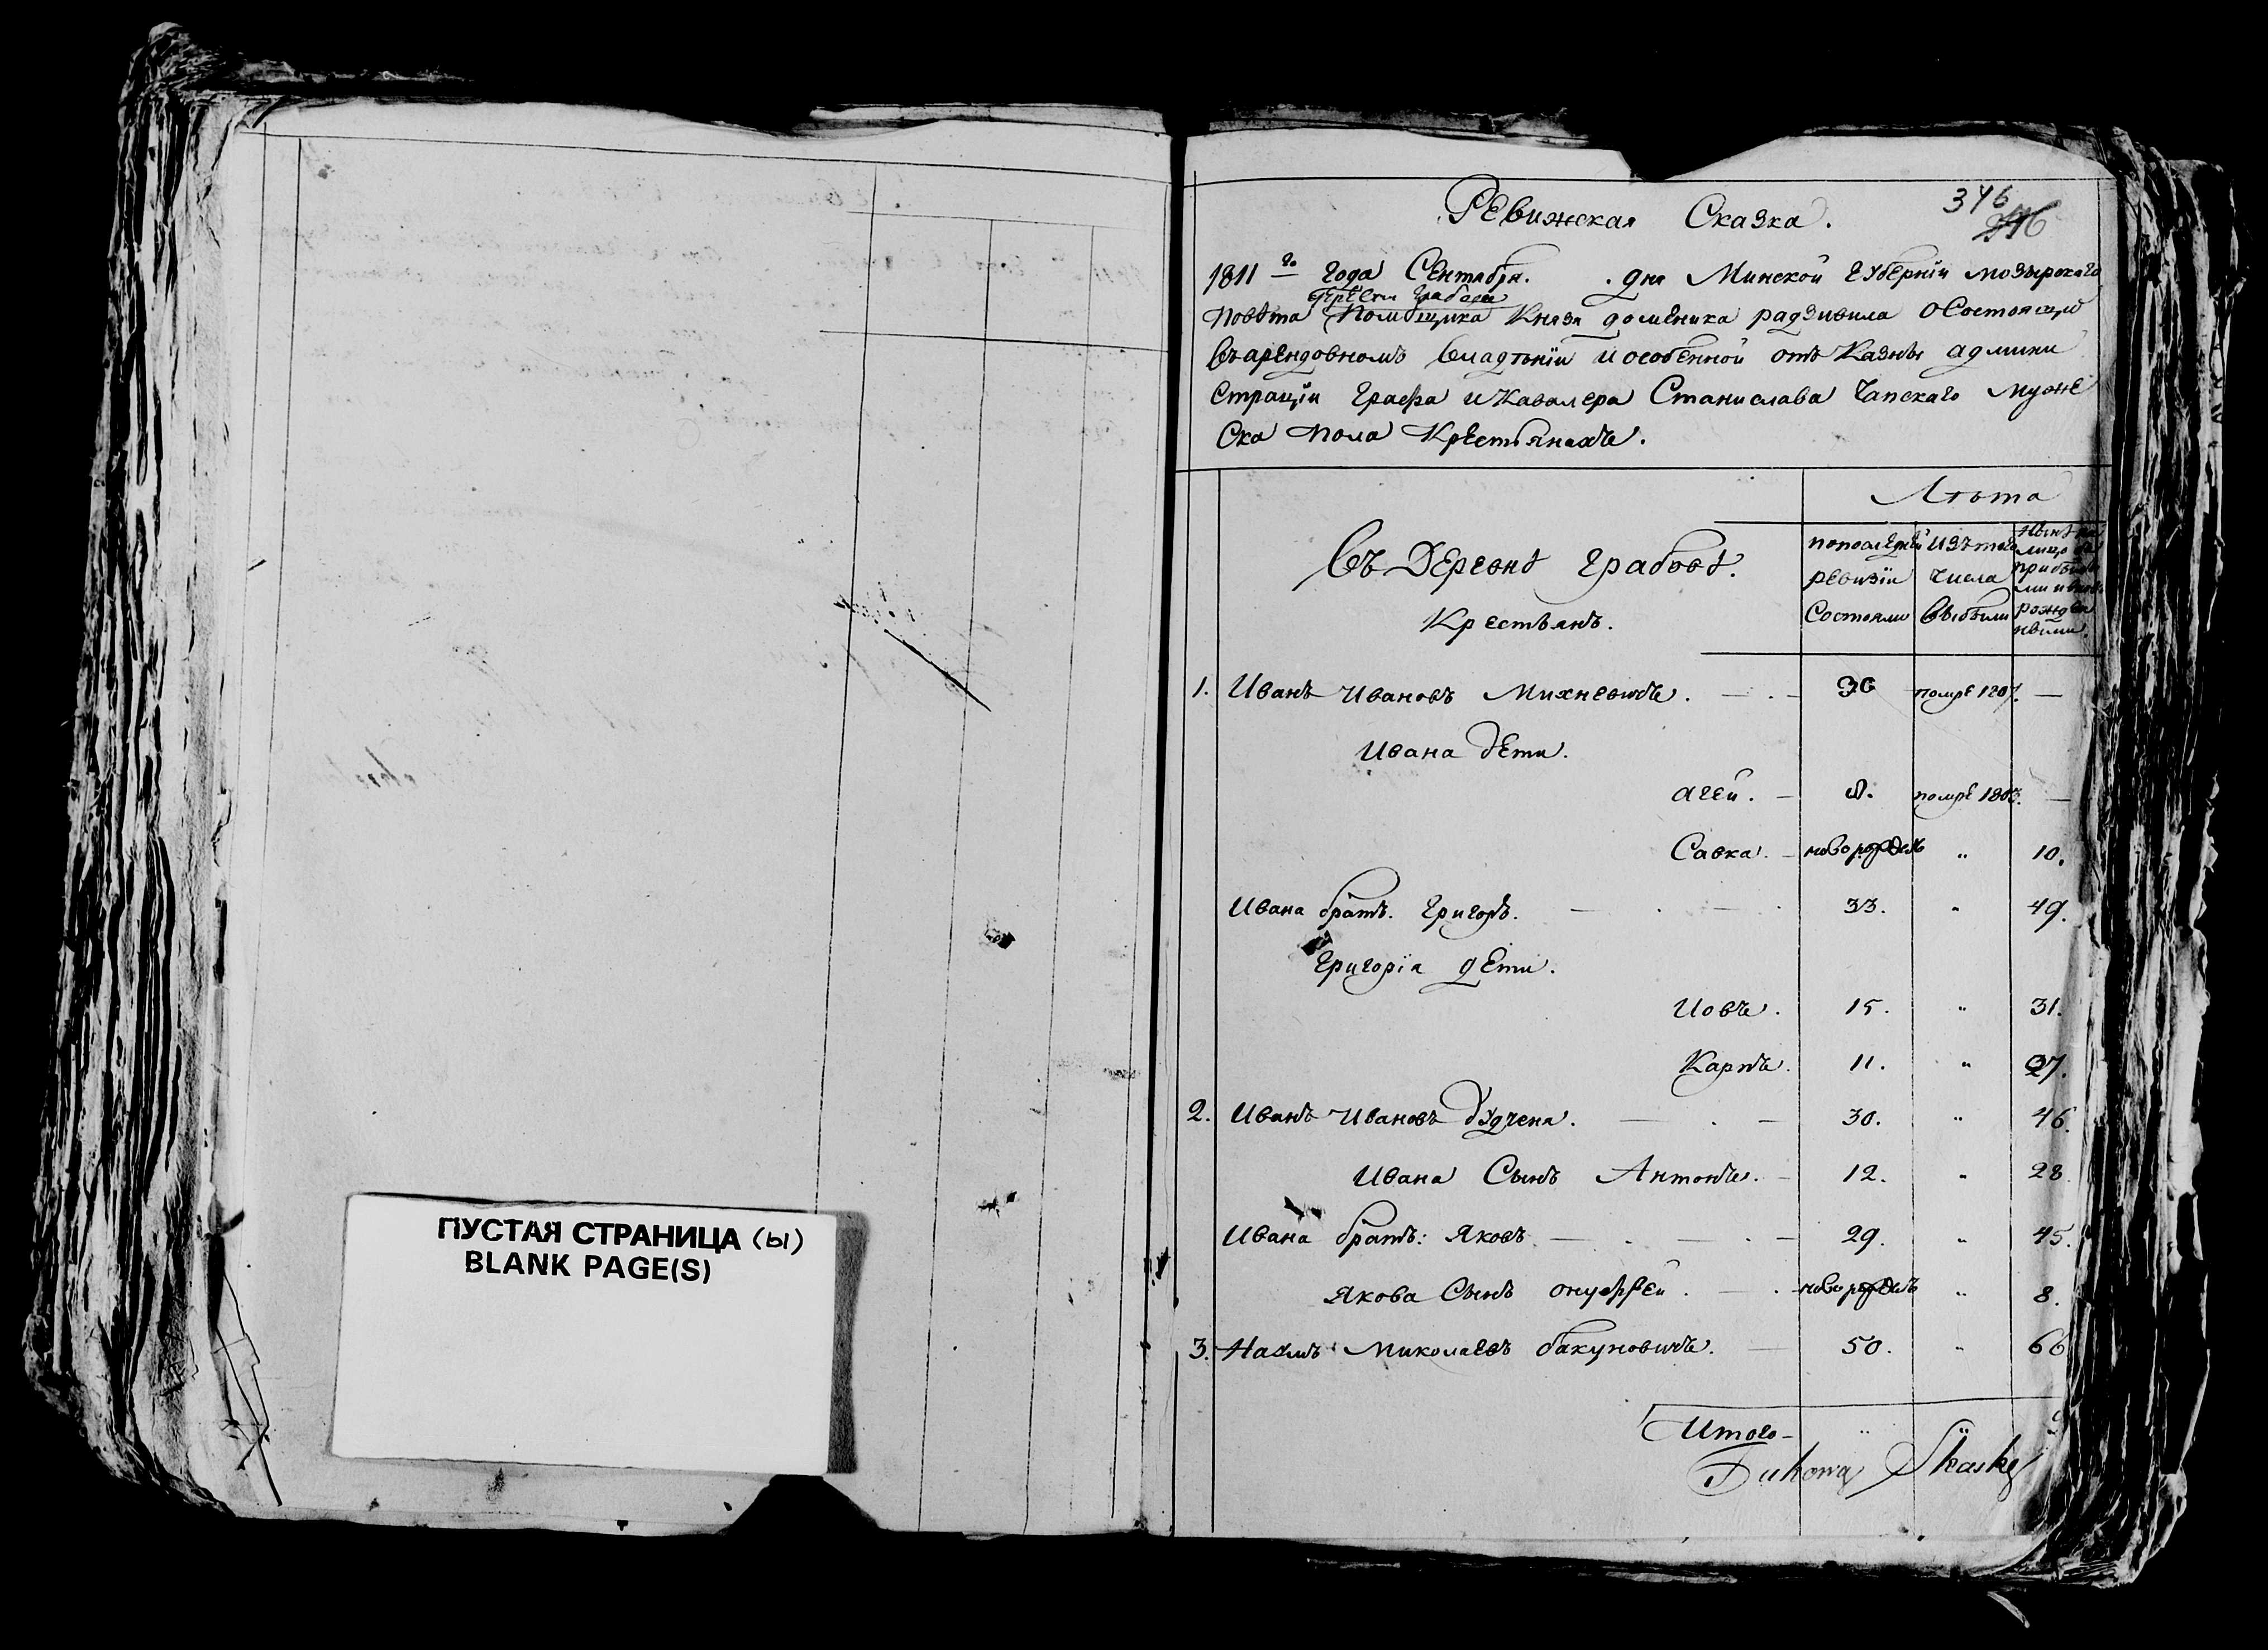 ПУСТАЯ СТРАНИЦА (ы)
BLANK PAGE(S)
346
Ревижская Сказка.
1811 го года Сентября. дня Минской губерніи мозырскаго
деревни Грабова
повѣта помѣщика Князя доменика радзивила Состоящей
въ арендовномъ владѣніи и особенной отъ Казны админи
страціи графа и Кавалера Станислава Чапскаго муже
ска пола Крестьянахъ.
Лѣта
Въ Деревнѣ Грабовѣ.
Крестьянъ.
попоследней ревизіи Состояли
изъ того числа выбыли
1. Иванъ Ивановъ Михневичъ. — 36 помре 1807. —
Ивана дети.
агей. — 8. помре 1803. —
Савка. — новорожденъ " 10.
Ивана братъ. Григоръ. — 33. " 49.
Григорія дети.
Иовъ. 15. " 31.
Карпъ. 11. " 27.
2. Иванъ Ивановъ будчена. — 30. " 46.
Ивана Сынъ Антонъ. — 12. " 28
Ивана братъ: Яковъ. — 29. " 45.
Якова Сынъ онуфрей. — новорожденъ " 8.
3. Наумъ Миколаевъ бакуновичъ. — 50. " 66
Итого — "
Skaskę